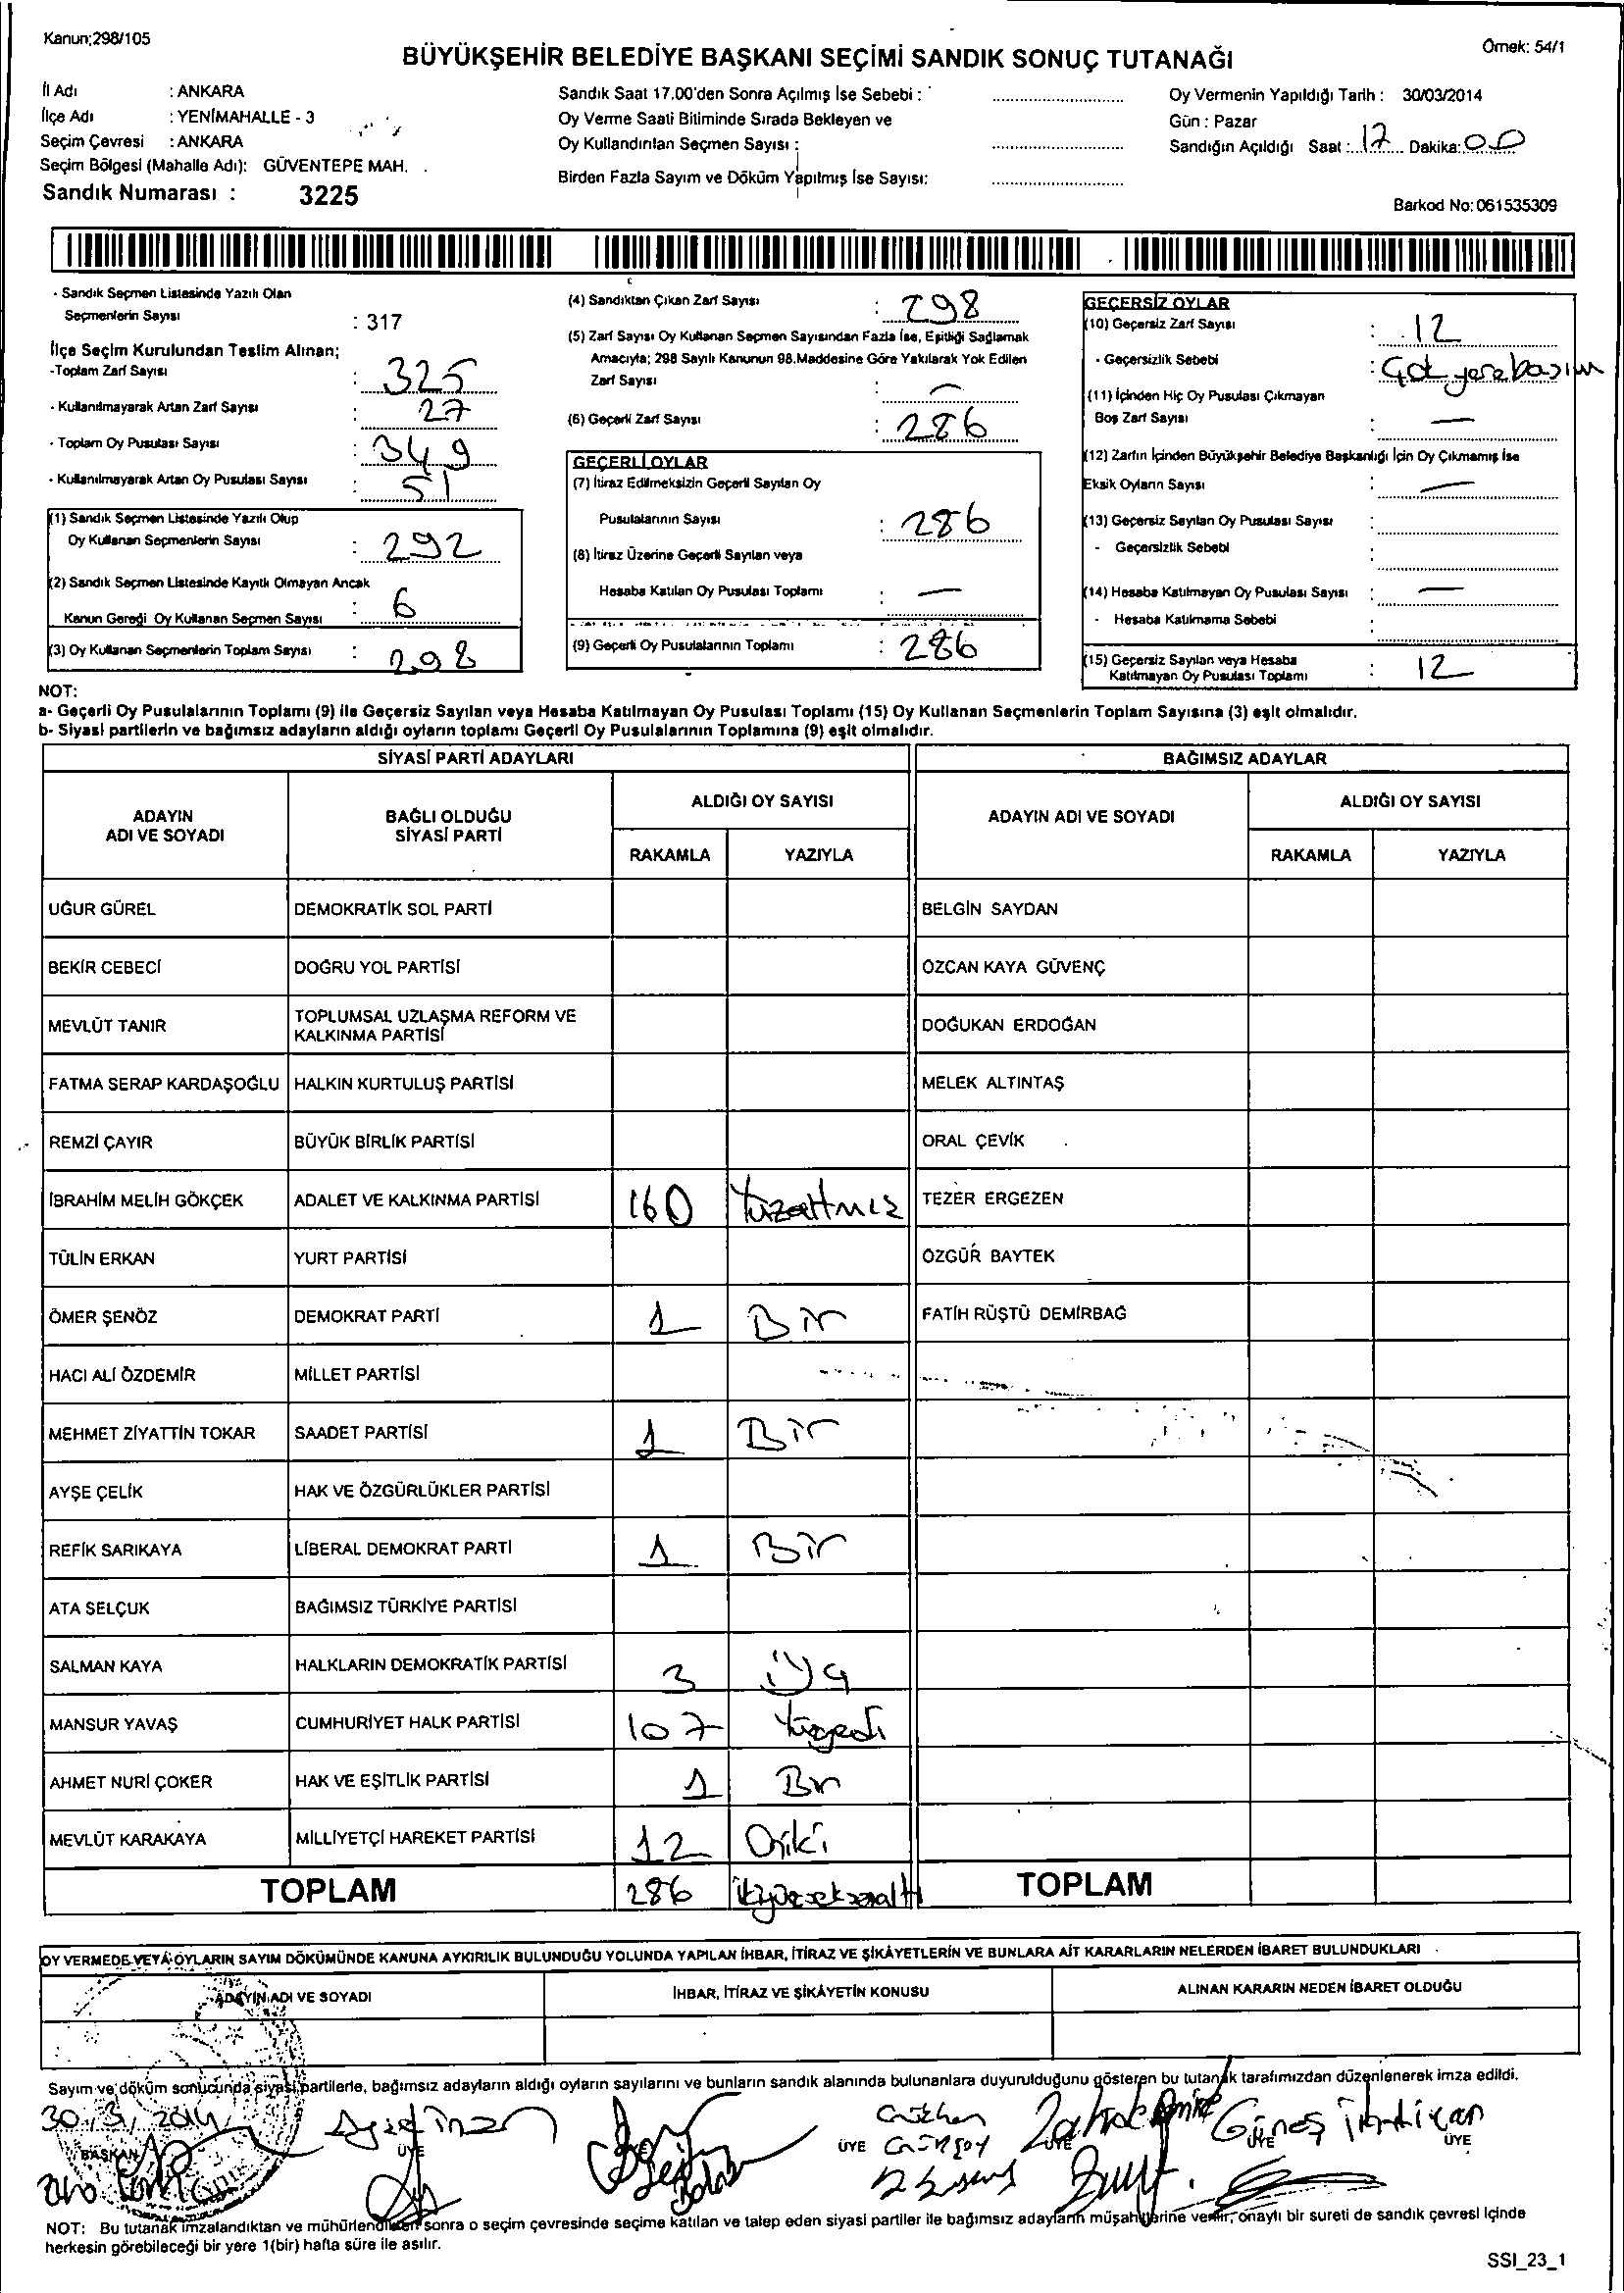 Kanun;298/105
Örnek: 54/1
BÜYÜKŞEHİR BELEDİYE BAŞKANI SEÇİMİ SANDIK SONUÇ TUTANAĞI
İl Adı : ANKARA
İlçe Adı : YENİMAHALLE - 3
Seçim Çevresi : ANKARA
Seçim Bölgesi (Mahalle Adı): GÜVENTEPE MAH.
Sandık Numarası : 3225
Sandık Saat 17.00'den Sonra Açılmış İse Sebebi :
Oy Verme Saati Bitiminde Sırada Bekleyen ve
Oy Kullandırılan Seçmen Sayısı :
Birden Fazla Sayım ve Döküm Yapılmış İse Sayısı:
Oy Vermenin Yapıldığı Tarih : 30/03/2014
Gün : Pazar
Sandığın Açıldığı Saat : 17 Dakika: 00
Barkod No: 061535309
- Sandık Seçmen Listesinde Yazılı Olan
Seçmenlerin Sayısı : 317
İlçe Seçim Kurulundan Teslim Alınan;
-Toplam Zarf Sayısı : 325
- Kullanılmayarak Artan Zarf Sayısı : 27
- Toplam Oy Pusulası Sayısı : 349
- Kullanılmayarak Artan Oy Pusulası Sayısı : 51
(1) Sandık Seçmen Listesinde Yazılı Olup
Oy Kullanan Seçmenlerin Sayısı : 292
(2) Sandık Seçmen Listesinde Kayıtlı Olmayan Ancak
Kanun Gereği Oy Kullanan Seçmen Sayısı : 6
(3) Oy Kullanan Seçmenlerin Toplam Sayısı : 298
(4) Sandıktan Çıkan Zarf Sayısı : 298
(5) Zarf Sayısı Oy Kullanan Seçmen Sayısından Fazla İse, Eşitliği Sağlamak
Amacıyla; 298 Sayılı Kanunun 98.Maddesine Göre Yakılarak Yok Edilen
Zarf Sayısı : —
(6) Geçerli Zarf Sayısı : 286
GEÇERLİ OYLAR
(7) İtiraz Edilmeksizin Geçerli Sayılan Oy
Pusulalarının Sayısı : 286
(8) İtiraz Üzerine Geçerli Sayılan veya
Hesaba Katılan Oy Pusulası Toplamı : —
(9) Geçerli Oy Pusulalarının Toplamı : 286
GEÇERSİZ OYLAR
(10) Geçersiz Zarf Sayısı : 12
- Geçersizlik Sebebi : Çok yere basım
(11) İçinden Hiç Oy Pusulası Çıkmayan
Boş Zarf Sayısı : —
(12) Zarfın İçinden Büyükşehir Belediye Başkanlığı İçin Oy Çıkmamış İse
Eksik Oyların Sayısı : —
(13) Geçersiz Sayılan Oy Pusulası Sayısı :
- Geçersizlik Sebebi :
(14) Hesaba Katılmayan Oy Pusulası Sayısı : —
- Hesaba Katılmama Sebebi :
(15) Geçersiz Sayılan veya Hesaba
Katılmayan Oy Pusulası Toplamı : 12
NOT:
a- Geçerli Oy Pusulalarının Toplamı (9) ile Geçersiz Sayılan veya Hesaba Katılmayan Oy Pusulası Toplamı (15) Oy Kullanan Seçmenlerin Toplam Sayısına (3) eşit olmalıdır.
b- Siyasi partilerin ve bağımsız adayların aldığı oyların toplamı Geçerli Oy Pusulalarının Toplamına (9) eşit olmalıdır.
SİYASİ PARTİ ADAYLARI
BAĞIMSIZ ADAYLAR
ADAYIN
ADI VE SOYADI
BAĞLI OLDUĞU
SİYASİ PARTİ
ALDIĞI OY SAYISI
RAKAMLA YAZIYLA
ADAYIN ADI VE SOYADI
ALDIĞI OY SAYISI
RAKAMLA YAZIYLA
UĞUR GÜREL DEMOKRATİK SOL PARTİ BELGİN SAYDAN
BEKİR CEBECİ DOĞRU YOL PARTİSİ ÖZCAN KAYA GÜVENÇ
MEVLÜT TANIR TOPLUMSAL UZLAŞMA REFORM VE
KALKINMA PARTİSİ DOĞUKAN ERDOĞAN
FATMA SERAP KARDAŞOĞLU HALKIN KURTULUŞ PARTİSİ MELEK ALTINTAŞ
REMZİ ÇAYIR BÜYÜK BİRLİK PARTİSİ ORAL ÇEVİK
İBRAHİM MELİH GÖKÇEK ADALET VE KALKINMA PARTİSİ 160 Yüzaltmız TEZER ERGEZEN
TÜLİN ERKAN YURT PARTİSİ ÖZGÜR BAYTEK
ÖMER ŞENÖZ DEMOKRAT PARTİ 1 Bir FATİH RÜŞTÜ DEMİRBAĞ
HACI ALİ ÖZDEMİR MİLLET PARTİSİ
MEHMET ZİYATTİN TOKAR SAADET PARTİSİ 1 Bir
AYŞE ÇELİK HAK VE ÖZGÜRLÜKLER PARTİSİ
REFİK SARIKAYA LİBERAL DEMOKRAT PARTİ 1 Bir
ATA SELÇUK BAĞIMSIZ TÜRKİYE PARTİSİ
SALMAN KAYA HALKLARIN DEMOKRATİK PARTİSİ 3 Üç
MANSUR YAVAŞ CUMHURİYET HALK PARTİSİ 107 Yüzyedi
AHMET NURİ ÇOKER HAK VE EŞİTLİK PARTİSİ 1 Bir
MEVLÜT KARAKAYA MİLLİYETÇİ HAREKET PARTİSİ 12 Oniki
TOPLAM 286 ikiyüzseksenaltı TOPLAM
OY VERMEDE VEYA OYLARIN SAYIM DÖKÜMÜNDE KANUNA AYKIRILIK BULUNDUĞU YOLUNDA YAPILAN İHBAR, İTİRAZ VE ŞİKÂYETLERİN VE BUNLARA AİT KARARLARIN NELERDEN İBARET BULUNDUKLARI
ADAYIN ADI VE SOYADI İHBAR, İTİRAZ VE ŞİKÂYETİN KONUSU ALINAN KARARIN NEDEN İBARET OLDUĞU
Sayım ve döküm sonucunda siyasi partilerle, bağımsız adayların aldığı oyların sayılarını ve bunların sandık alanında bulunanlara duyurulduğunu gösteren bu tutanak tarafımızdan düzenlenerek imza edildi.
30.3.2014
BAŞKAN ÜYE ÜYE ÜYE ÜYE ÜYE
Güneş
NOT: Bu tutanak imzalandıktan ve mühürlendikten sonra o seçim çevresinde seçime katılan ve talep eden siyasi partiler ile bağımsız adayların müşahitlerine verilir, onaylı bir sureti de sandık çevresi içinde
herkesin görebileceği bir yere 1(bir) hafta süre ile asılır.
SSI_23_1